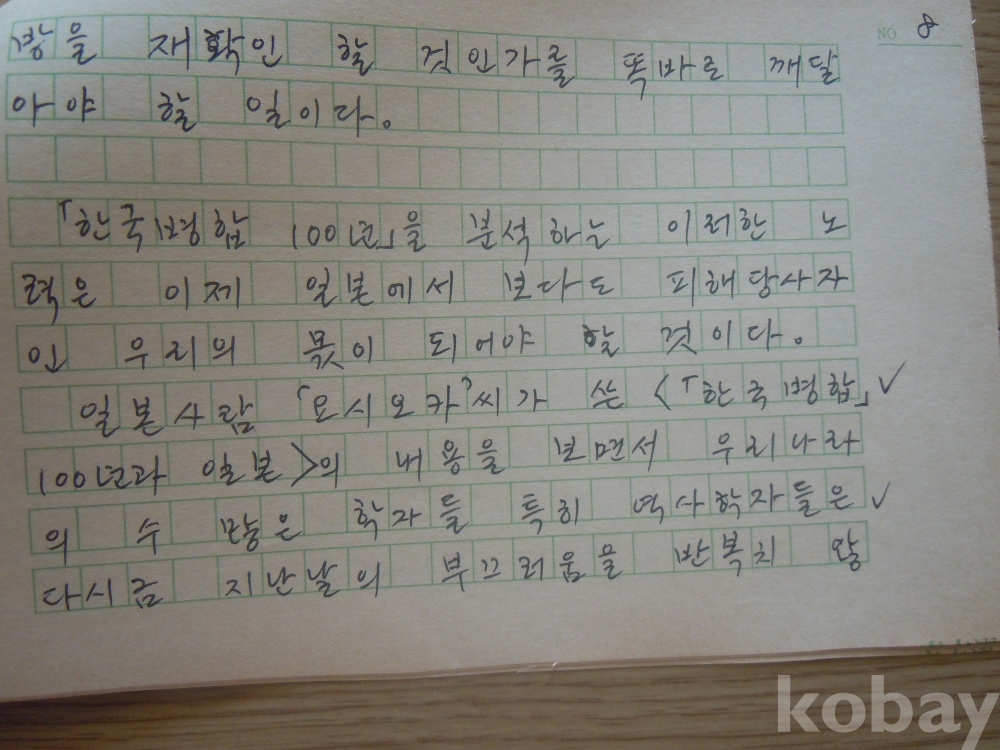 NO 8
방을 재확인 할 것인가를 똑바로 깨달
아야 할 일이다.
「한국병합 100년」을 분석하는 이러한 노
력은 이제 일본에서 보다도 피해당사자
인 우리의 몫이 되어야 할 것이다.
일본사람 「요시오카」씨가 쓴 <「한국병합」 ✓
100년과 일본>의 내용을 보면서 우리나라
의 수 많은 학자들 특히 역사학자들은 ✓
다시금 지난날의 부끄러움을 반복치 않
kobay